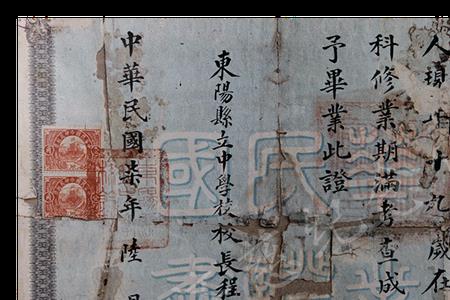 人現年十九歲在
科修業期滿考查成
予畢業此證
東陽縣立中學校校長程
中華民國柒年陸月
民國